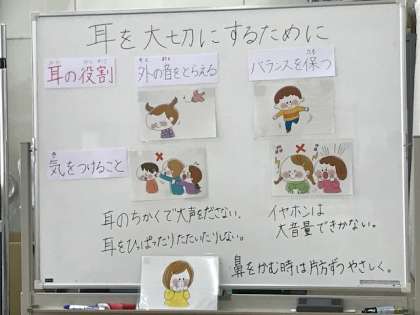 耳を大切にするために
耳の役割
外の音をとらえる
バランスを保つ
気をつけること
耳のちかくで大声をださない。
耳をひっぱったりたたいたりしない。
イヤホンは
大音量できかない。
鼻をかむ時は片方ずつやさしく。